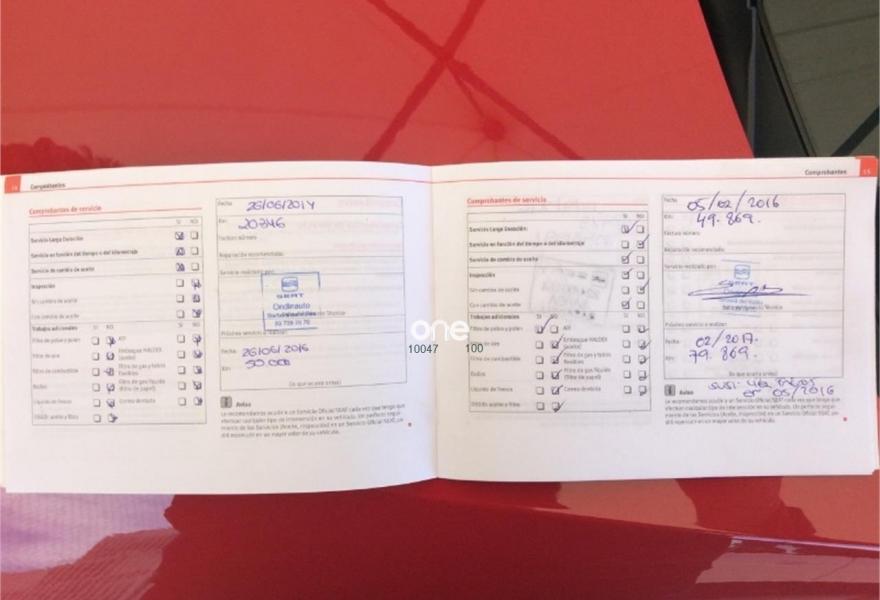 14 Comprobantes
Comprobantes de servicio
SI NO
Servicio Larga Duración
Servicio en función del tiempo o del kilometraje
Servicio de cambio de aceite
Inspección
Sin cambio de aceite
Con cambio de aceite
Trabajos adicionales SI NO SI NO
Filtro de polvo y polen
Filtro de gas
Embrague HALDEX (aceite)
Filtro de combustible
Filtro de gas y tubos flexibles
Bujías
Filtro de gas líquido (filtro de papel)
Líquido de frenos
Correa dentada
DSG®: aceite y filtro
Fecha: 26/06/2014
Km: 20746
Factura número:
Reparación recomendada:
Servicio realizado por:
SEAT
Ondinauto
Próximo servicio a realizar:
Fecha: 26/06/2016
Km: 50.000
(lo que ocurra antes)
Aviso
Le recomendamos acudir a un Servicio Oficial SEAT cada vez que tenga que
efectuar cualquier tipo de intervención en su vehículo.
Comprobantes 15
Comprobantes de servicio
SI NO
Servicio Larga Duración:
Servicio en función del tiempo o del kilometraje
Servicio de cambio de aceite
Inspección
Sin cambio de aceite
Con cambio de aceite
Trabajos adicionales SI NO SI NO
Filtro de polvo y polen
Embrague HALDEX (aceite)
Filtro de combustible
Filtro de gas y tubos flexibles
Bujías
Filtro de gas líquido (filtro de papel)
Líquido de frenos
Correa dentada
DSG®: aceite y filtro
Fecha: 05/02/2016
Km: 49.869.
Factura número:
Reparación recomendada:
Servicio realizado por:
SEAT
Próximo servicio a realizar:
Fecha: 02/2017.
Km: 79.869.
(lo que ocurra antes)
en 05/2016
Aviso
Le recomendamos acudir a un Servicio Oficial SEAT cada vez que tenga que
efectuar cualquier tipo de intervención en su vehículo.
one
10047 100